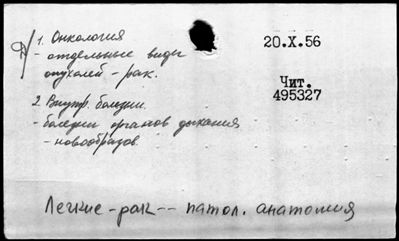 1. Онкология
- отдельные виды
опухолей - рак.
2. Внутр. болезни.
- болезни органов дыхания
- новообразов.
20.X.56
Чит.
495327
Легкие - рак -- патол. анатомия